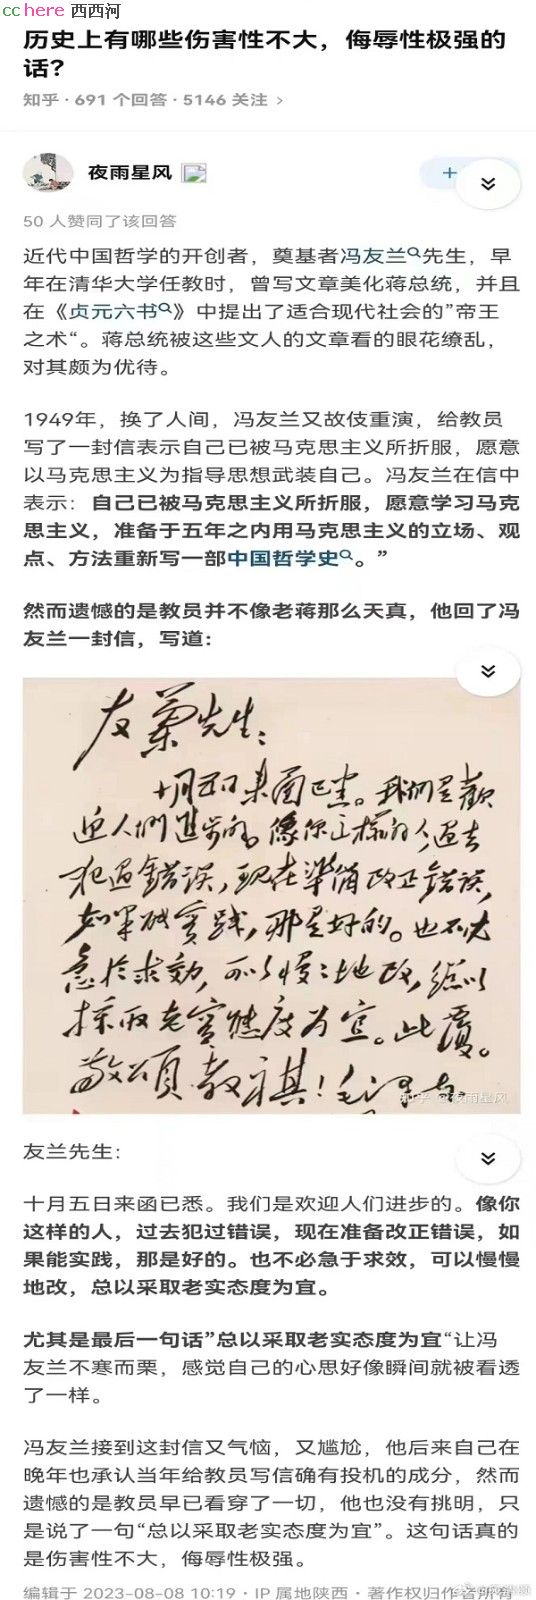 cchere 西西河
历史上有哪些伤害性不大，侮辱性极强的
话？
知乎 · 691 个回答 · 5146 关注 >
夜雨星风
+
50 人赞同了该回答
近代中国哲学的开创者，奠基者冯友兰先生，早
年在清华大学任教时，曾写文章美化蒋总统，并且
在《贞元六书》中提出了适合现代社会的”帝王
之术“。蒋总统被这些文人的文章看的眼花缭乱，
对其颇为优待。
1949年，换了人间，冯友兰又故伎重演，给教员
写了一封信表示自己已被马克思主义所折服，愿意
以马克思主义为指导思想武装自己。冯友兰在信中
表示：自己已被马克思主义所折服，愿意学习马克
思主义，准备于五年之内用马克思主义的立场、观
点、方法重新写一部中国哲学史。”
然而遗憾的是教员并不像老蒋那么天真，他回了冯
友兰一封信，写道：
友蘭先生：
十月五日来函已悉。我们是歡
迎人们进步的。像你这样的人，过去
犯过錯误，现在準備改正錯误，
如果能实践，那是好的。也不必
急於求効，可以慢慢地改，總以
採取老实態度为宜。此覆。
敬頌教祺！毛泽东
知乎 @夜雨星风
友兰先生：
十月五日来函已悉。我们是欢迎人们进步的。像你
这样的人，过去犯过错误，现在准备改正错误，如
果能实践，那是好的。也不必急于求效，可以慢慢
地改，总以采取老实态度为宜。
尤其是最后一句话”总以采取老实态度为宜“让冯
友兰不寒而栗，感觉自己的心思好像瞬间就被看透
了一样。
冯友兰接到这封信又气恼，又尴尬，他后来自己在
晚年也承认当年给教员写信确有投机的成分，然而
遗憾的是教员早已看穿了一切，他也没有挑明，只
是说了一句“总以采取老实态度为宜”。这句话真的
是伤害性不大，侮辱性极强。
编辑于 2023-08-08 10:19 · IP 属地陕西 · 著作权归作者所有